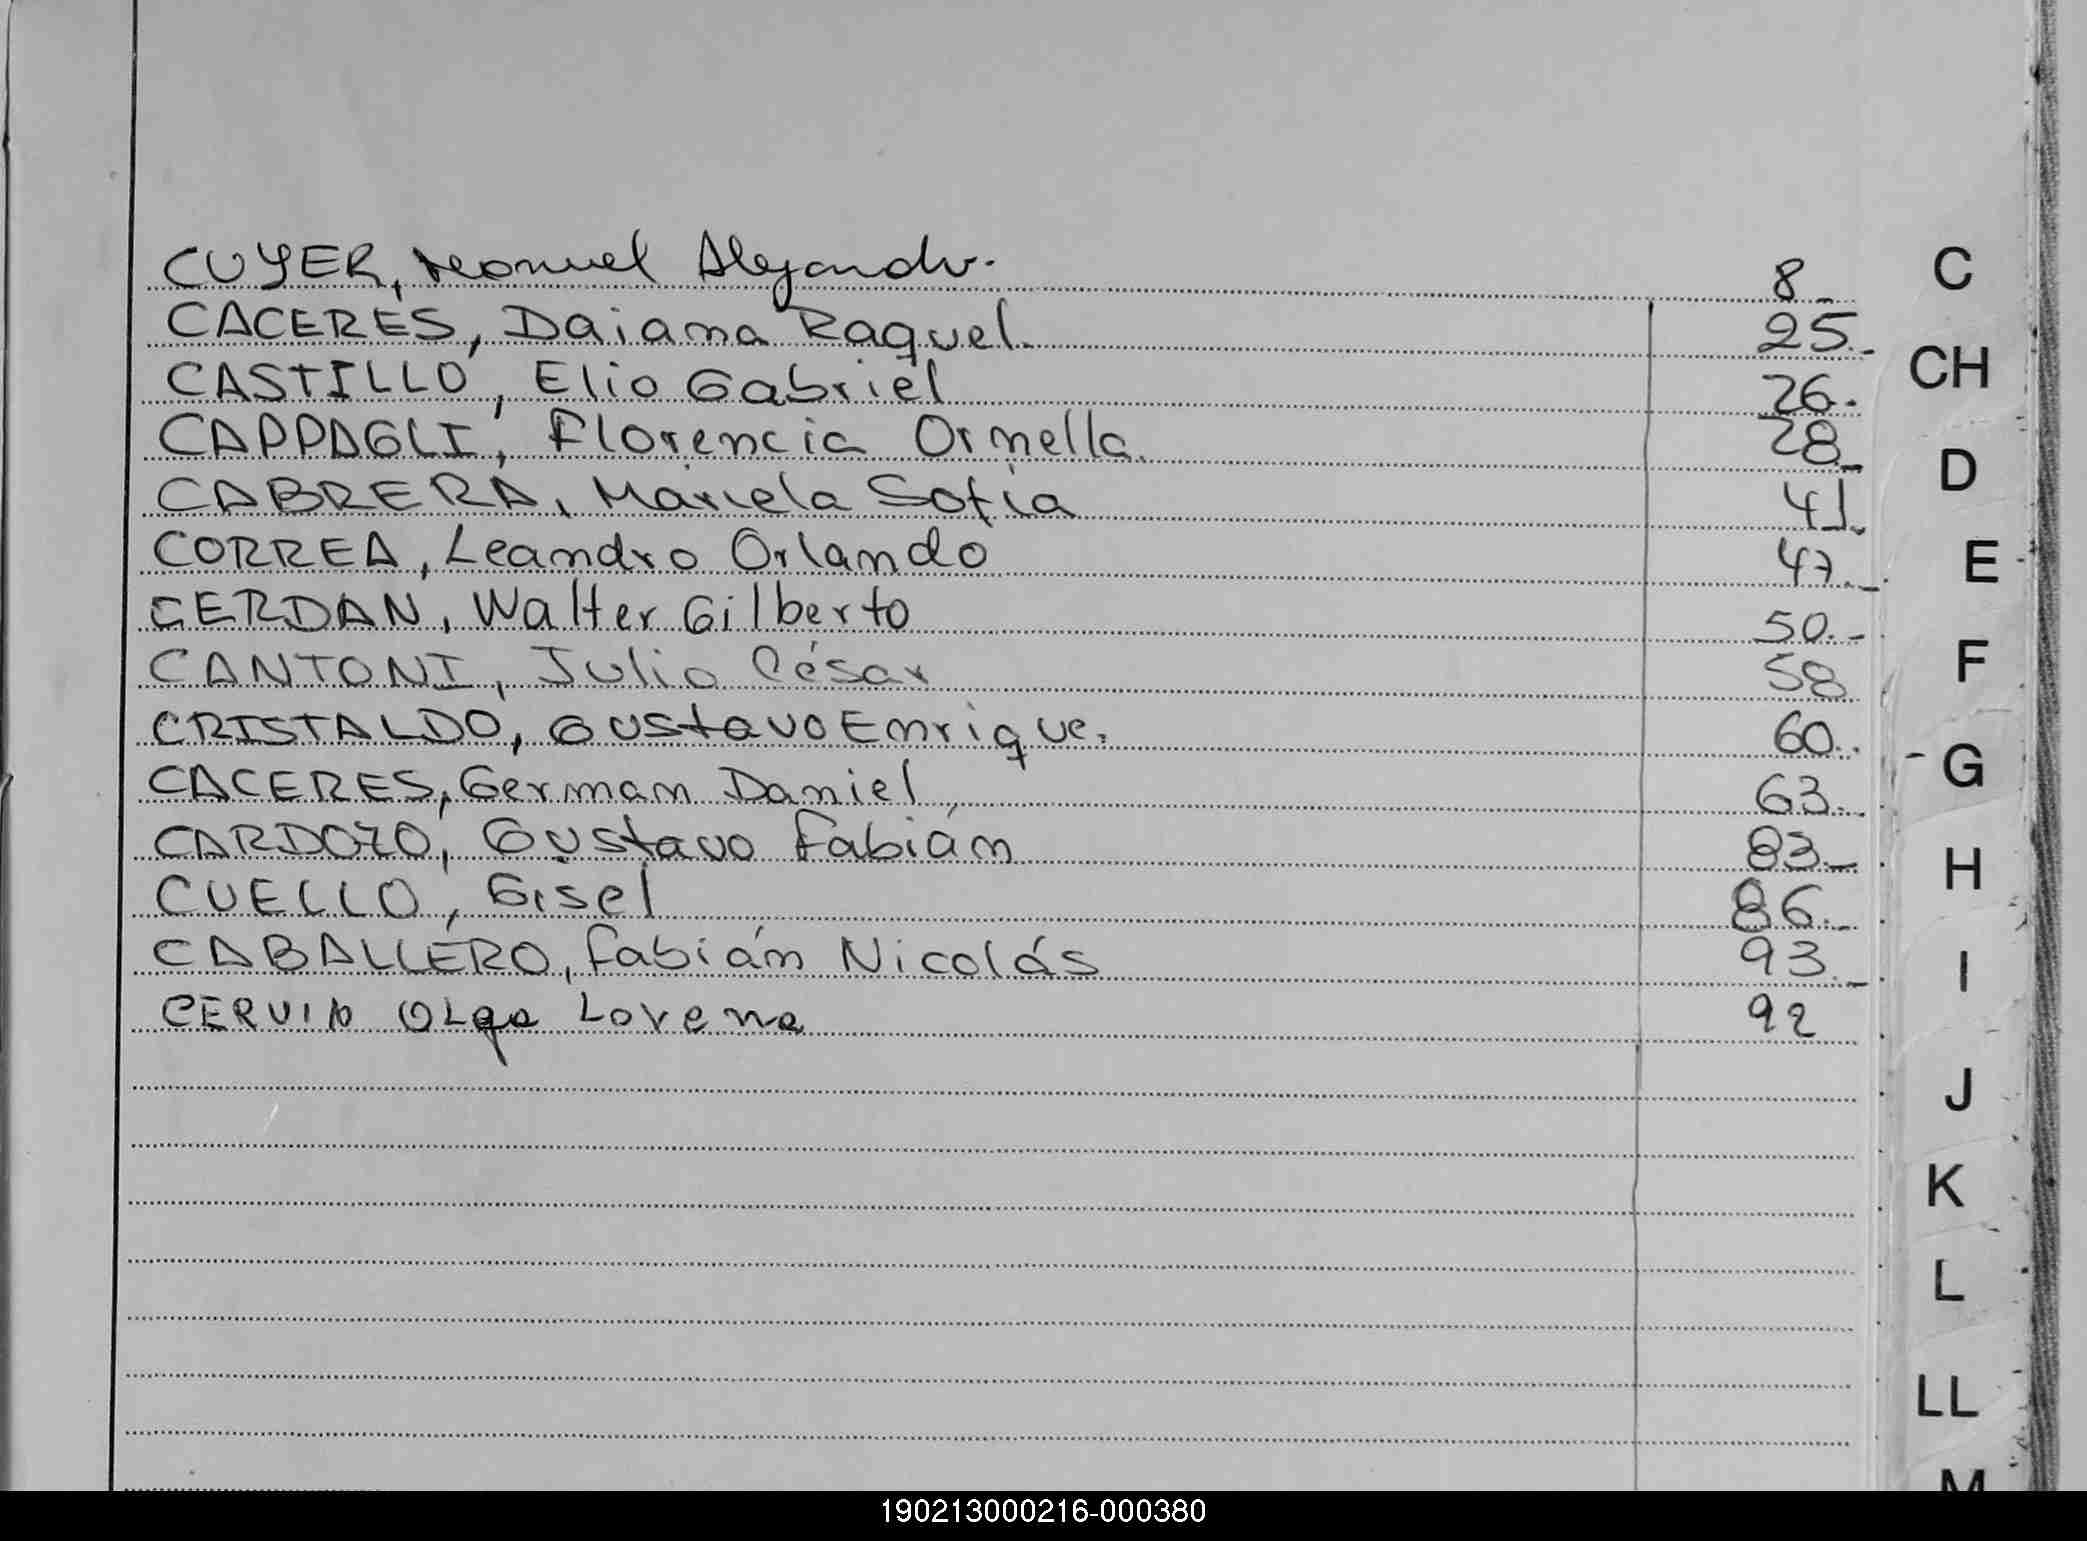 CUYER, Manuel Alejandro. 8.-
CACERES, Daiana Raquel. 25.-
CASTILLO, Elio Gabriel 26.-
CAPPAGLI, Florencia Ornella. 28.-
CABRERA, Mariela Sofia 41.-
CORREA, Leandro Orlando 47.-
CERDAN, Walter Gilberto 50.-
CANTONI, Julio César 58
CRISTALDO, Gustavo Enrique. 60.-
CACERES, German Daniel 63.-
CARDOZO, Gustavo Fabián 83.-
CUELLO, Gisel 86.-
CABALLERO, Fabián Nicolás 93.-
CERVIN Olga Lorena 92
C
CH
D
E
F
G
H
I
J
K
L
LL
M
190213000216-000380